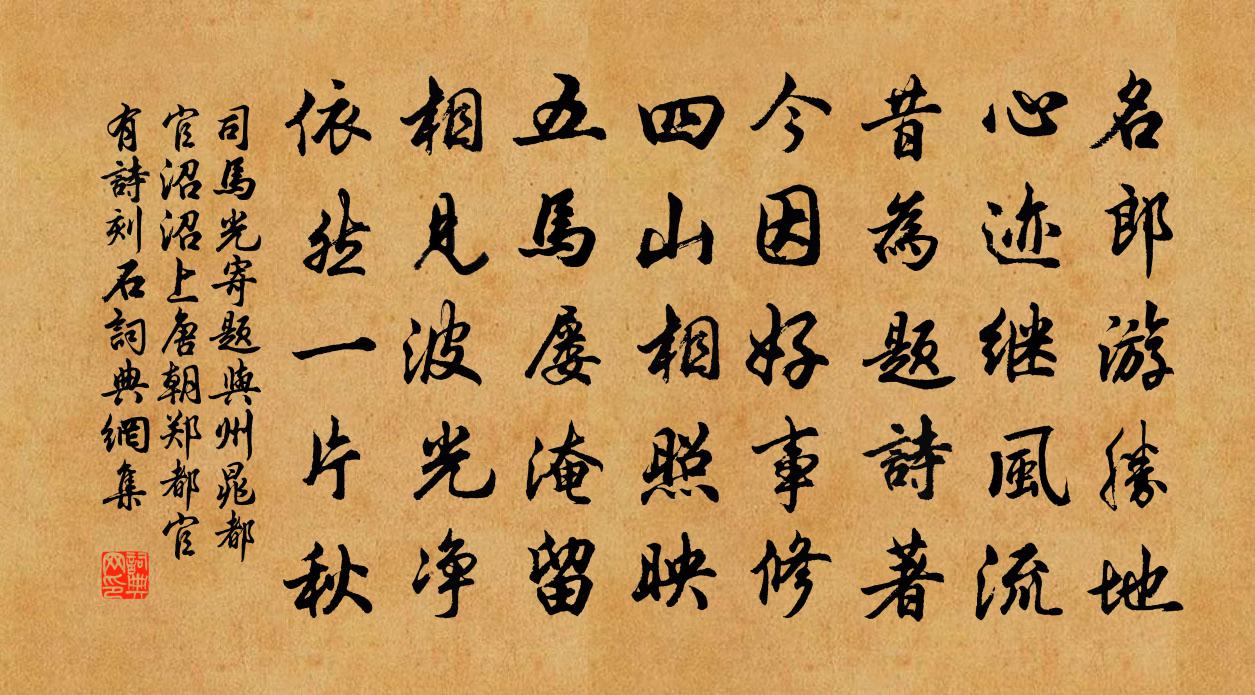 名郎游勝地
心迹继風流
昔為題詩著
今因好事修
四山相照映
五馬屡淹留
相見波光净
依然一片秋
司馬光寄題興州晁都
官沼沼上唐朝郑都官
有詩刻石詞典網集
詞典网印